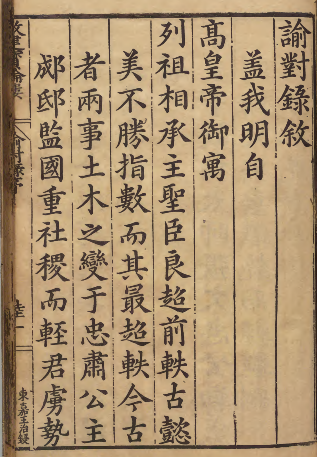 諭對錄敘
蓋我明自
髙皇帝御㝢
列祖相承主聖臣良超前軼古懿
美不勝指數而其最超軼今古
者兩事土木之變于忠肅公主
郕邸監國重社稷而輕君虜勢